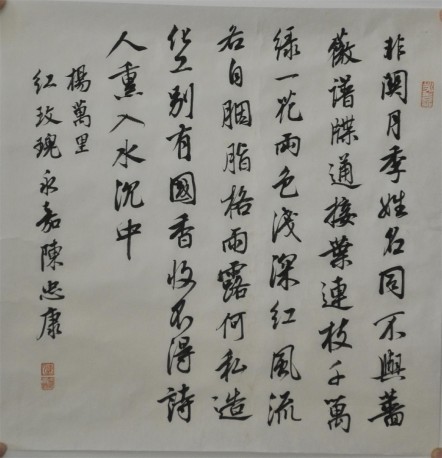 非關月季姓名同不與薔
薇譜牒通接葉連枝千萬
綠一花兩色淺深紅風流
各自胭脂格雨露何私造
化工別有國香收不得詩
人熏入水沉中
楊萬里
紅玫瑰永嘉陳忠康